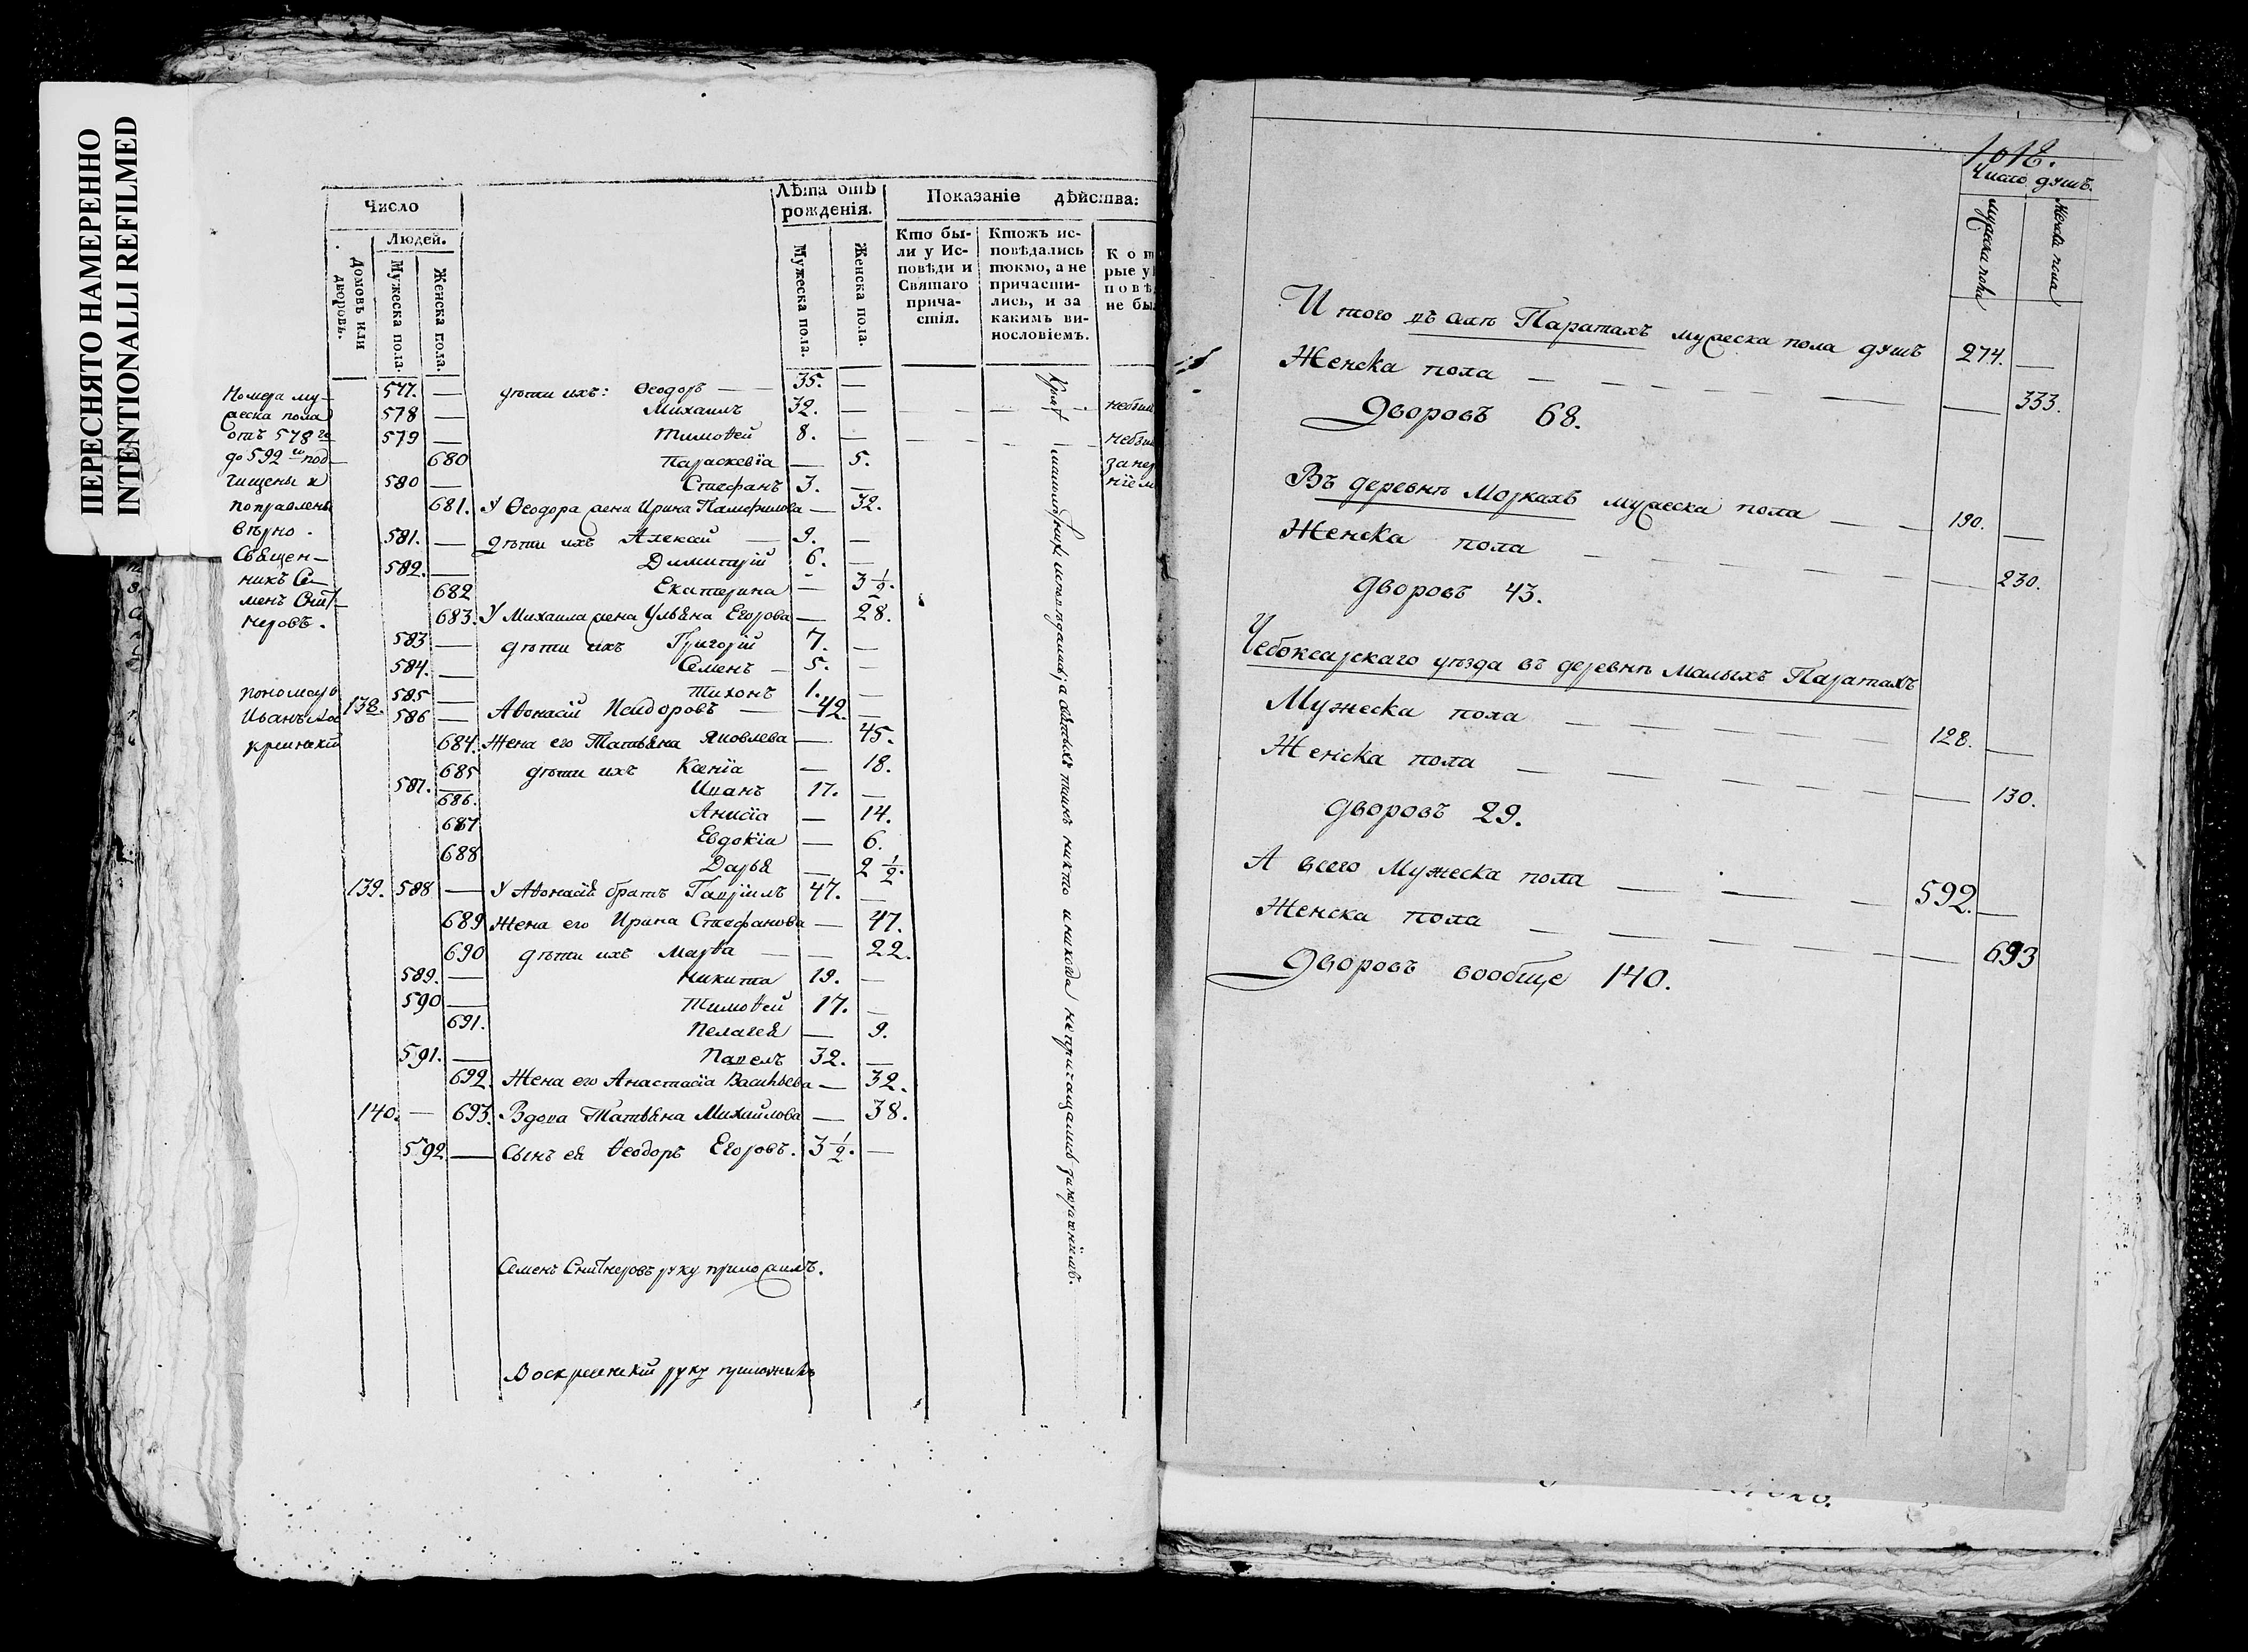 ПЕРЕСНЯТО НАМЕРЕННО
INTENTIONALLI REFILMED
Число
Людей.
Домовъ или дворовъ.
Мужеска пола.
Женска пола.
Лѣта отъ рожденія.
Мужеска пола.
Женска пола.
Показаніе дѣйства:
Кто бы-
ли у Ис-
повѣди и
Святаго
прича-
стія.
Ктожъ ис-
повѣдались
токмо, а не
причасти-
лись, и за
какимъ ви-
нословіемъ.
Кот
рые у
повѣ
не бы
Номера му-
жеска пола
отъ 578 го
до 592 го под-
чищены и
поправлены
вѣрно.
Священ-
никъ Се-
менъ Снит-
неровъ.
пономарь
Иванъ Вос
кресенскій
577. — дѣти ихъ: Ѳеодоръ — 35. —
578 — Михаилъ 32. —
579 — Тимоѳей 8. —
680 Параскевіа — 5.
580 — Стефанъ 3. —
681. У Ѳеодора жена Ирина Памфилова — 32.
581. — дѣти ихъ Алексѣй — 9. —
582. — Димитрій 6. —
682 Екатерина — 3 1/2.
683. У Михаила жена Ульяна Егорова — 28.
583 — дѣти ихъ Григорій 7. —
584. — Семенъ — 5. —
585 — Тихонъ 1. —
138. 586 — Аѳонасій Исидоровъ — 42. —
684. Жена его Татьяна Яковлева — 45.
685 дѣти ихъ Ксенія — 18.
587. — Иванъ 17. —
686. Анисіа — 14.
687 Евдокіа — 6.
688 Дарья — 2 1/2.
139. 588 — У Аѳонасія братъ Гаврилъ 47. —
689 Жена его Ирина Стефанова — 47.
690 дѣти ихъ Марѳа — — 22.
589. — Никита 19. —
590 — Тимоѳей 17. —
691. Пелагея — 9.
591. — Павелъ 32. —
692. Жена его Анастасіа Васильева — 32.
140. — 693. Вдова Татьяна Михайлова — 38.
592 — Сынъ ея Ѳеодоръ Егоровъ. 3 1/2. —
Семенъ Снитнеровъ руку приложилъ.
Воскресенскій руку приложилъ
1012.
Число душъ.
мужеска пола
женска пола
И того въ селѣ Паратахъ мужеска пола душъ 274. —
Женска пола — — — — — 333.
Дворовъ 68.
Въ деревнѣ Моркахъ мужеска пола — — 190. —
Женска пола — — — — — 230.
дворовъ 43.
Чебоксарскаго уѣзда въ деревнѣ Малыхъ Паратахъ
Мужеска пола — — — — 128. —
Женска пола — — — — — 130.
дворовъ 29.
А всего Мужеска пола — — — 592. —
Женска пола — — — — — 693
Дворовъ вообще 140.